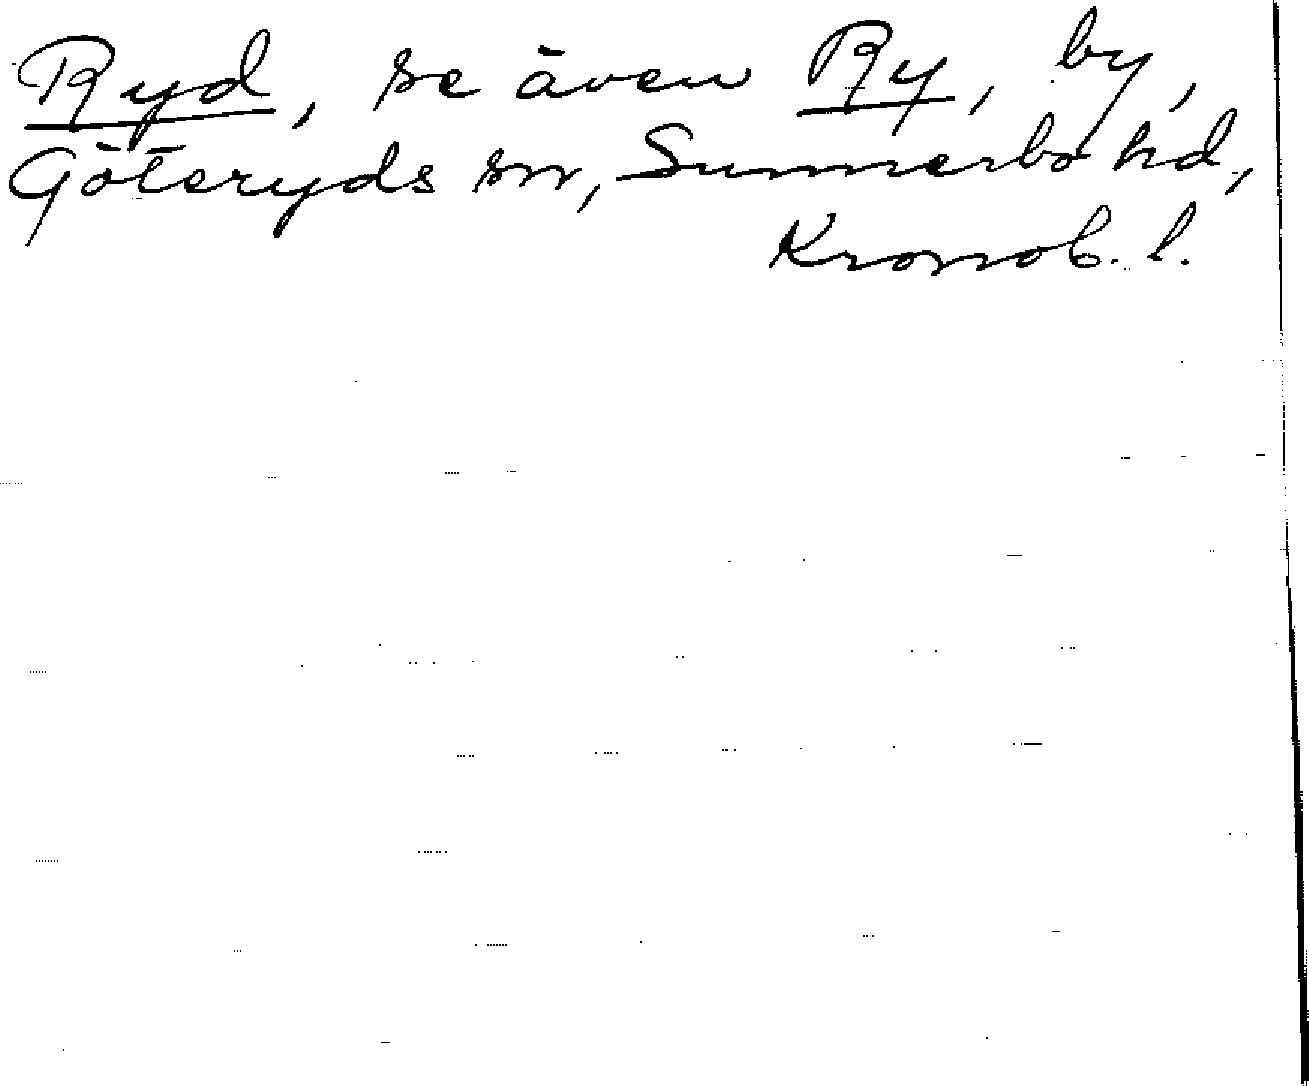 Ryd, se även Ry, by,
Göteryds sn, Sunnerbo hd,
Kronob. l.